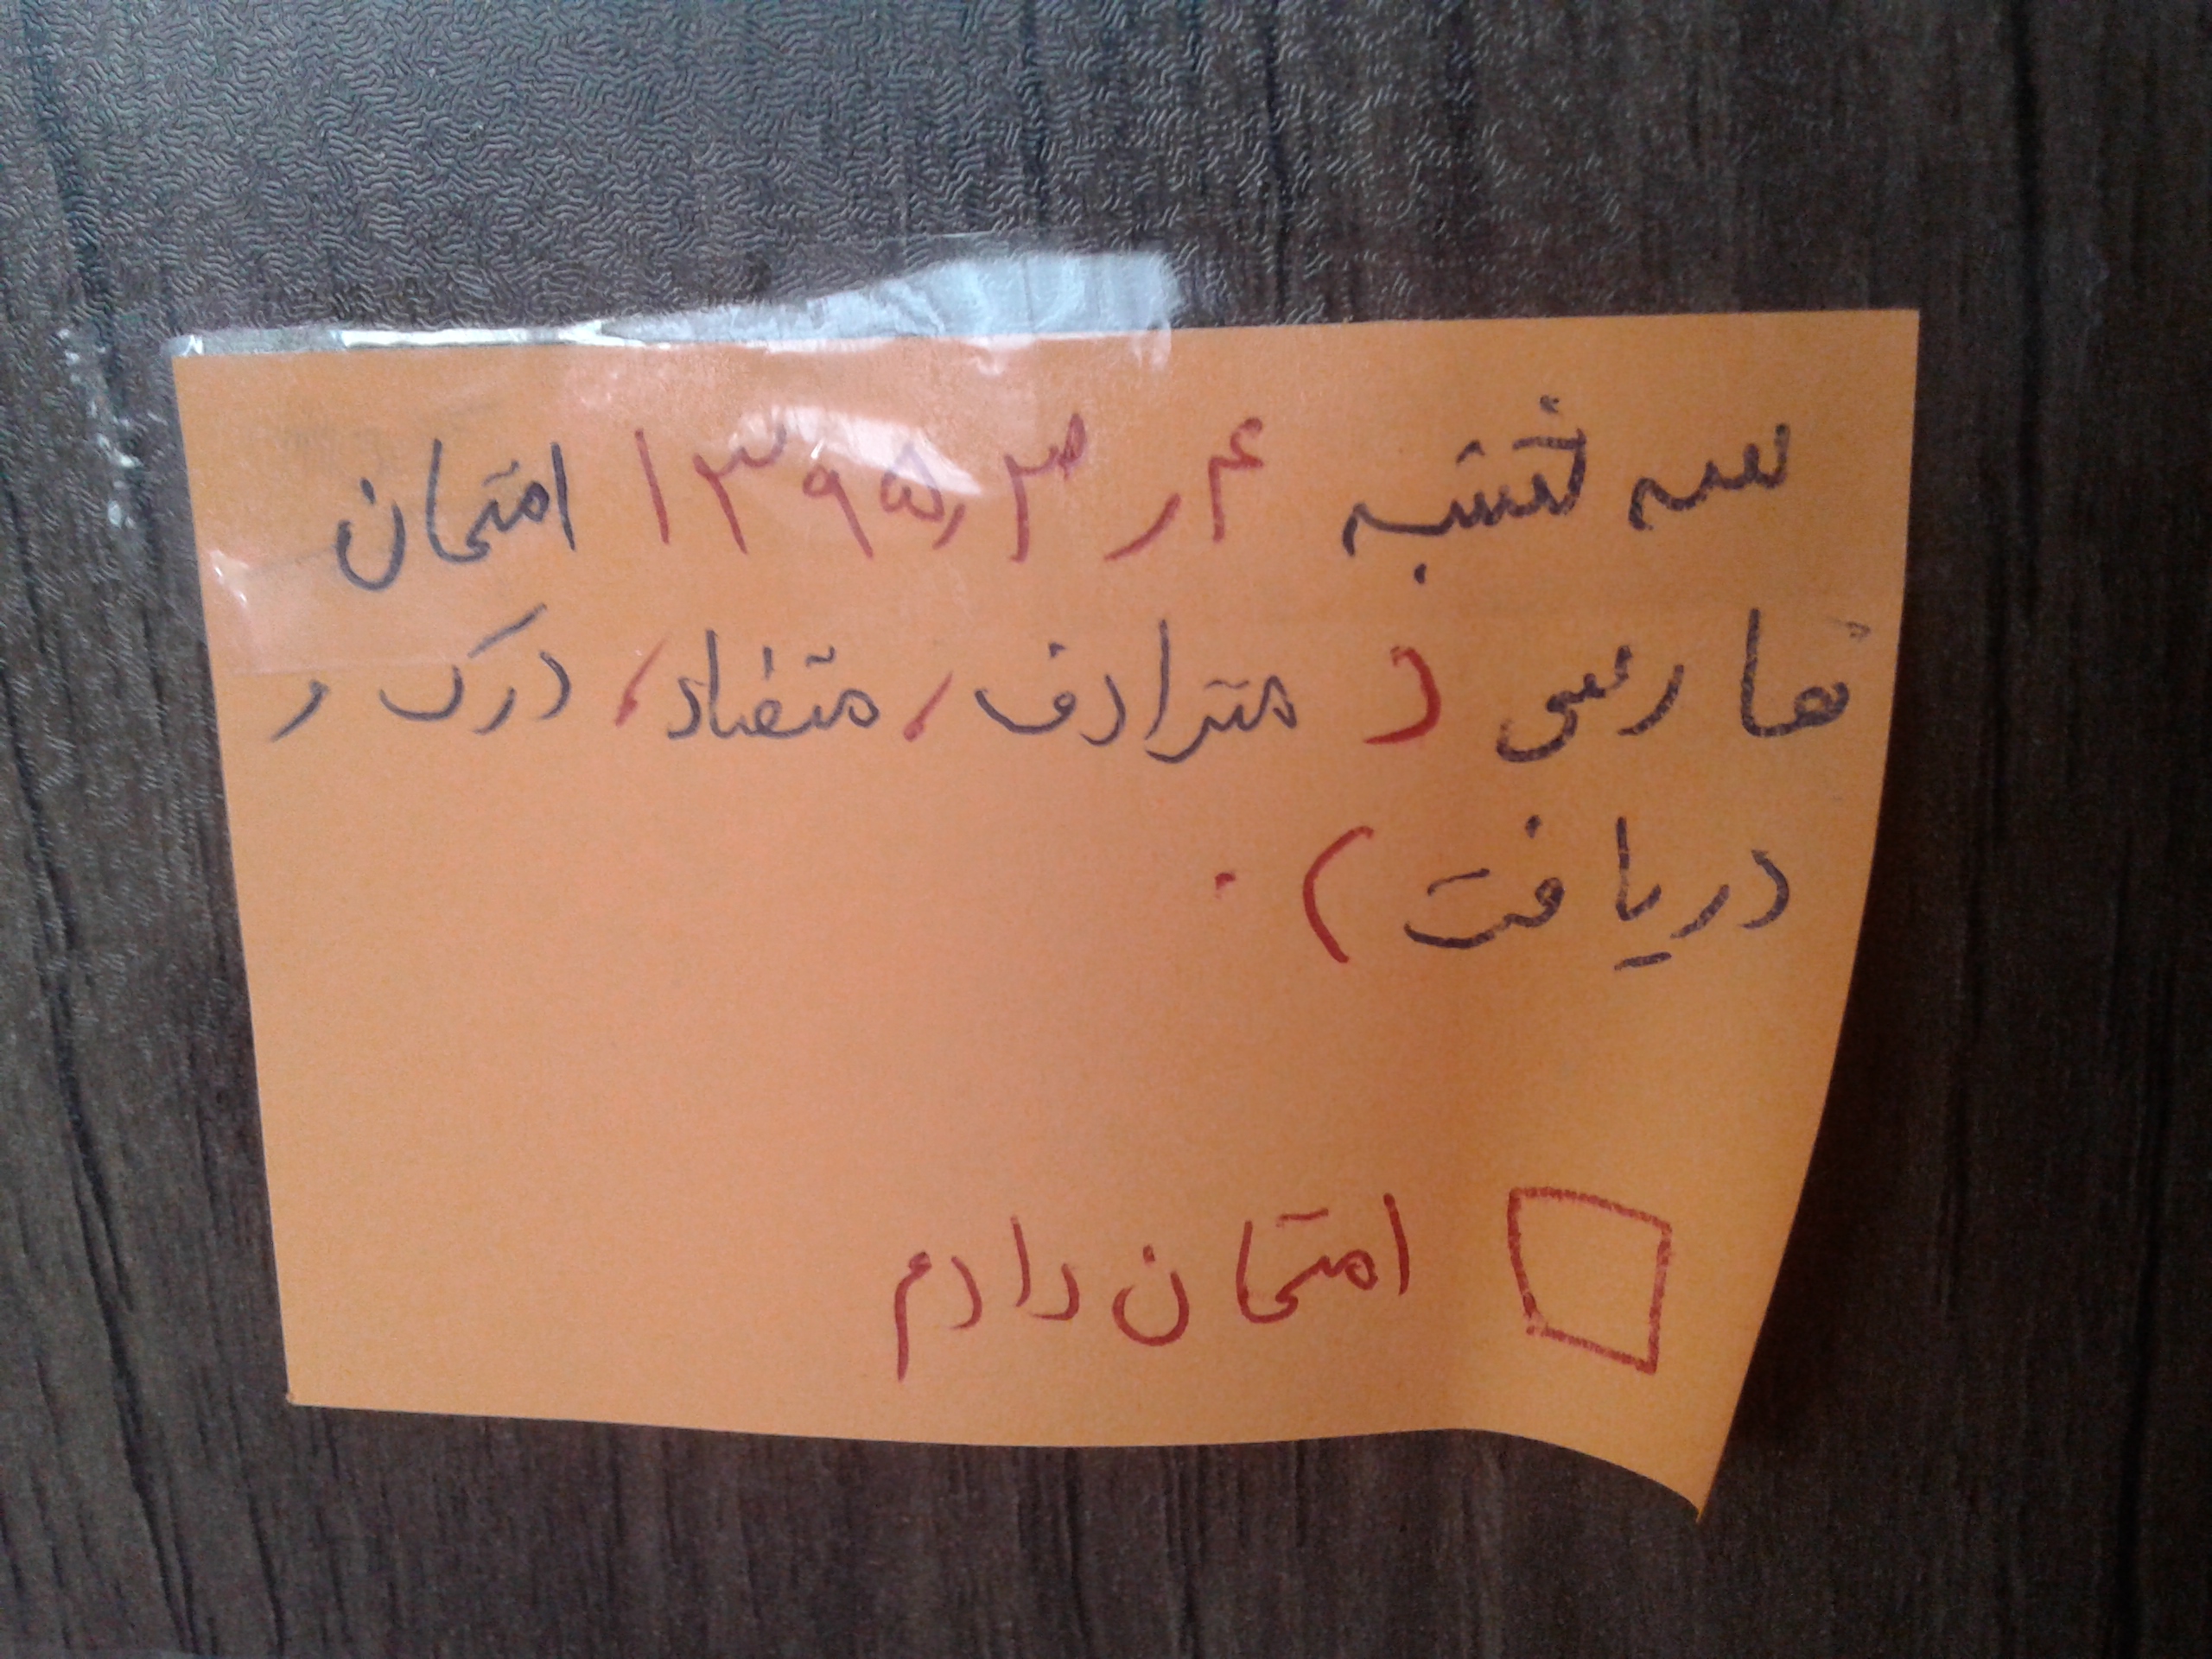 سه شنبه ۴ر۳ر۱۳۹۵ امتحان
فارسی ( مترادف، متضاد، درک و
دریافت ) .
امتحان دادم